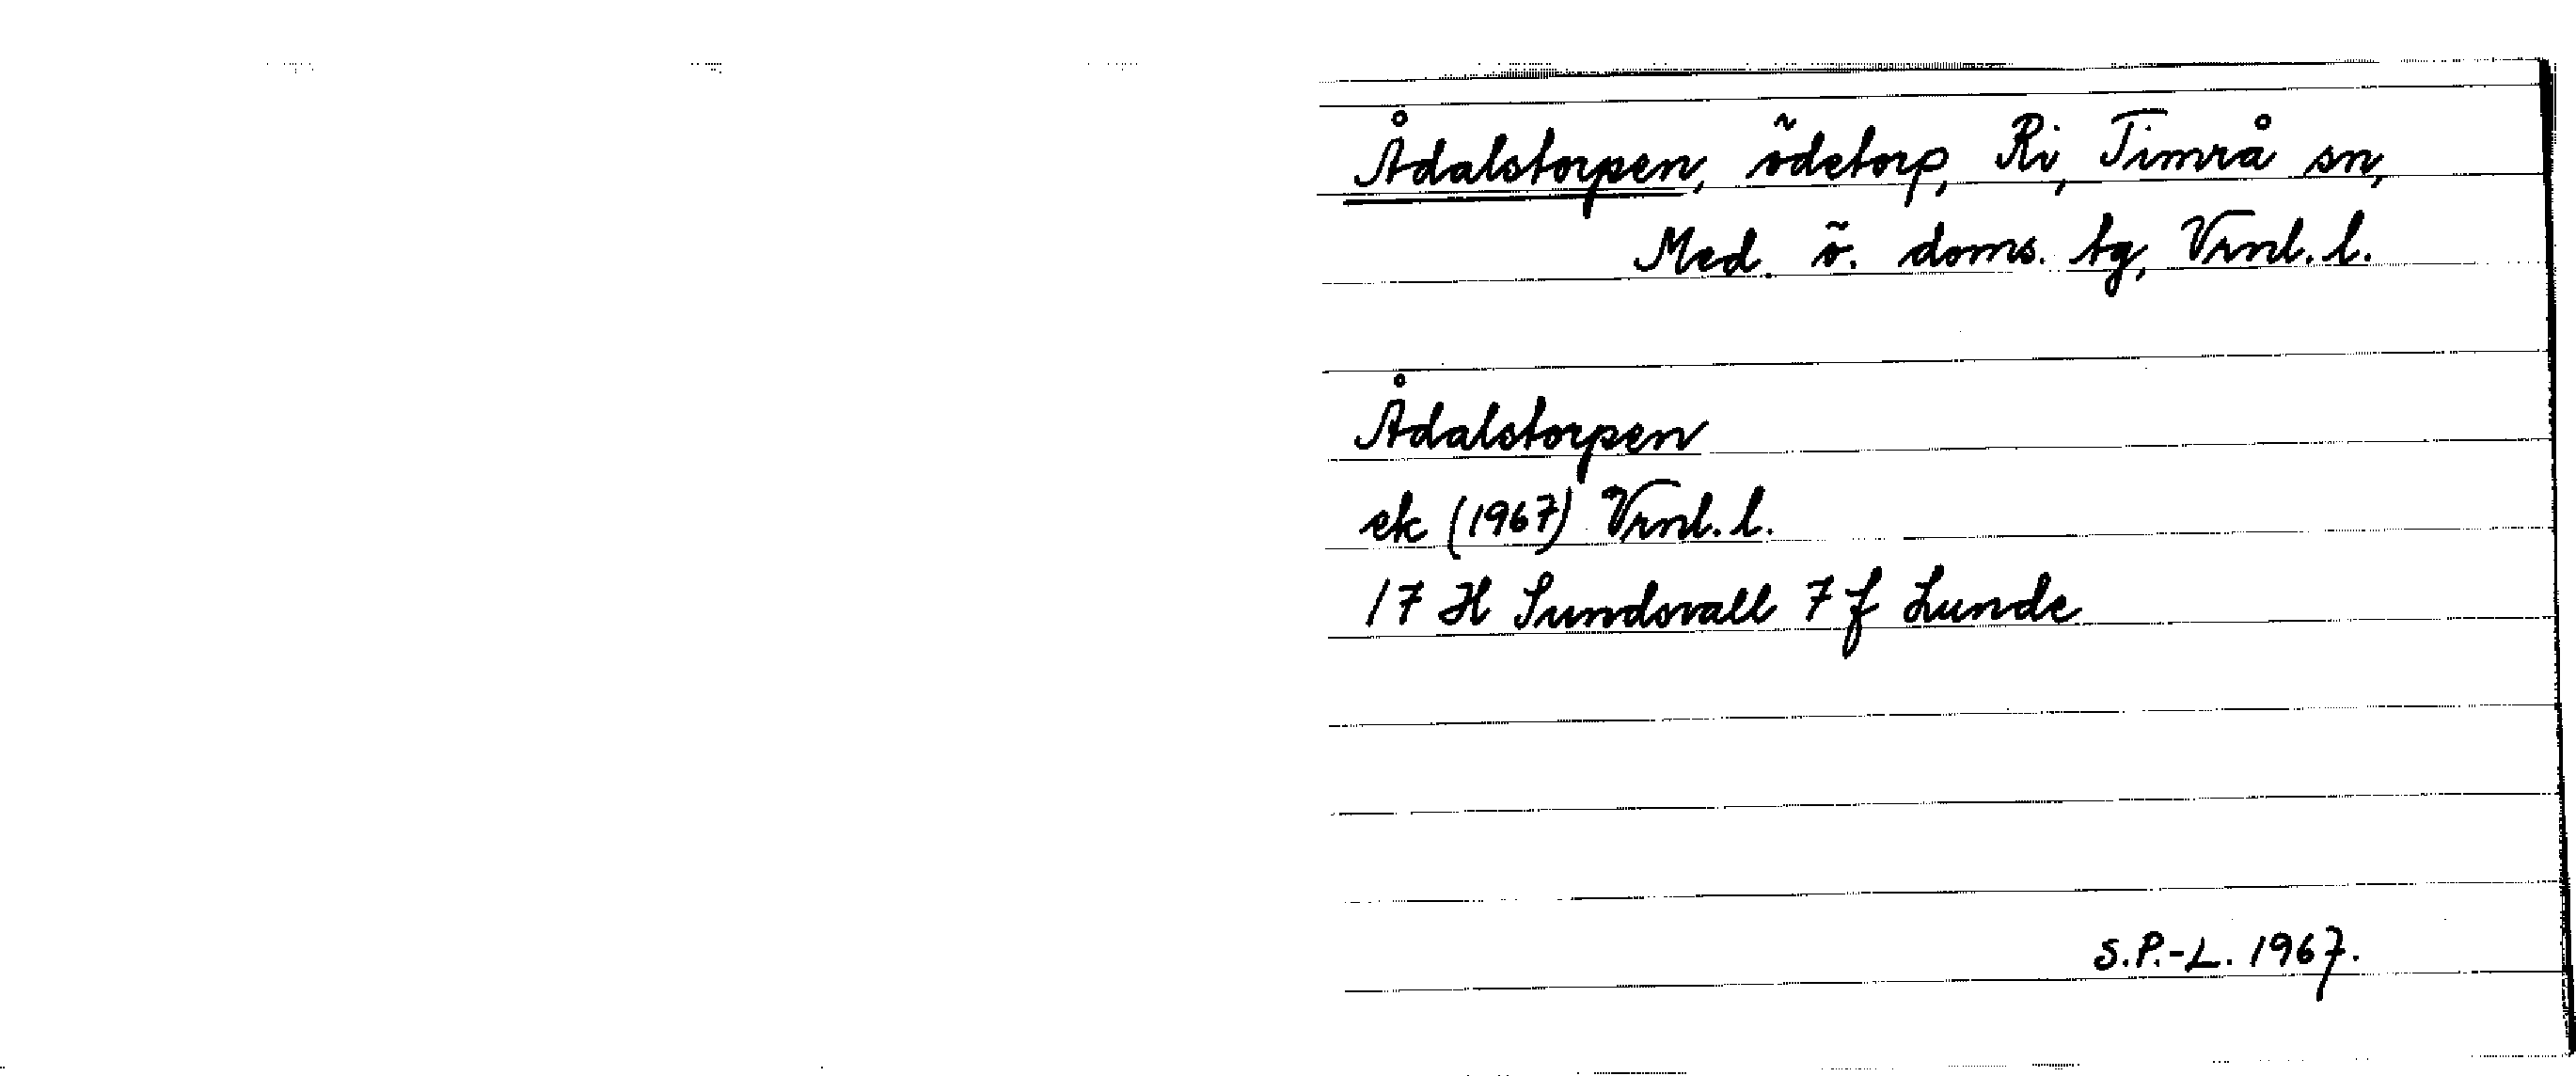 Ådalstorpen, ödetorp, Ri, Timrå sn,
Med. ö. doms. tg, Vrnl. l.
Ådalstorpen
ek (1967) Vrnl. l.
17 H Sundsvall 7 f Lunde
S.P.-L. 1967.